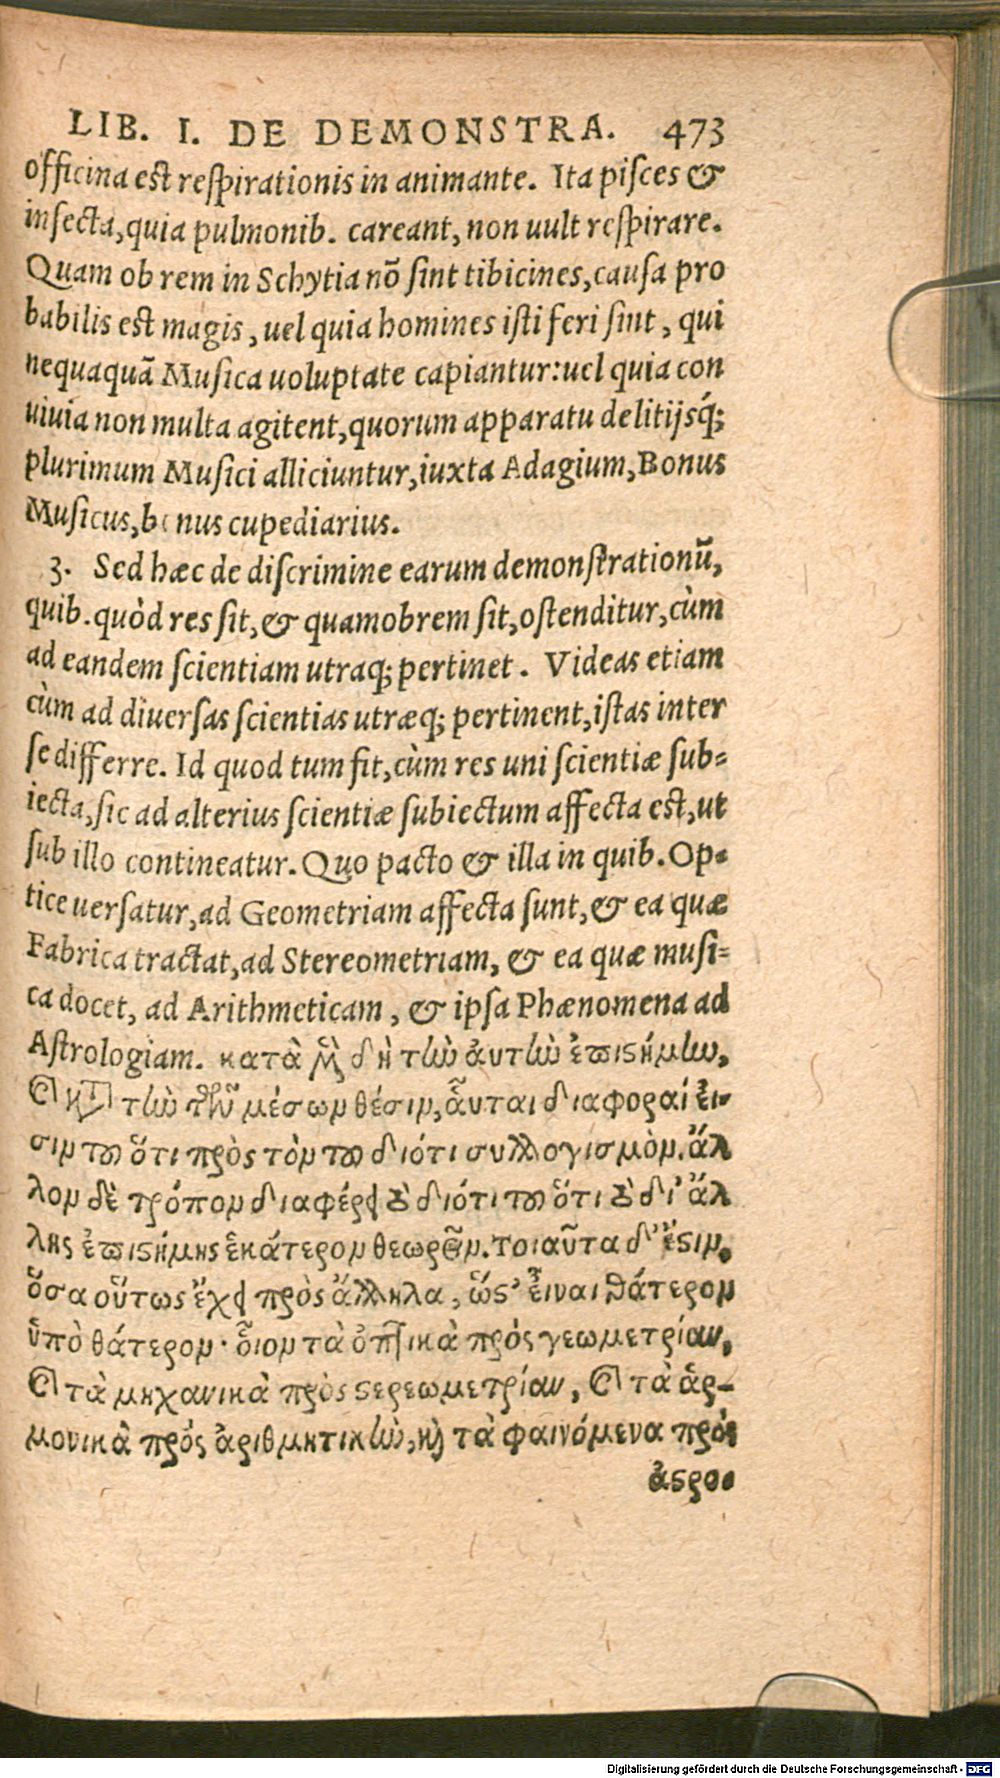 LIB. I. DE DEMONSTRA. 473
officina est respirationis in animante. Ita pisces &
insecta, quia pulmonib. careant, non uult respirare.
Quam ob rem in Schytia nõ sint tibicines, causa pro
babilis est magis, uel quia homines isti feri sint, qui
nequaquã Musica uoluptate capiantur: uel quia con
uiuia non multa agitent, quorum apparatu delitijsq́;
plurimum Musici alliciuntur, iuxta Adagium, Bonus
Musicus, bonus cupediarius.
3. Sed hæc de discrimine earum demonstrationũ,
quib. quòd res sit, & quamobrem sit, ostenditur, cùm
ad eandem scientiam utraq; pertinet. Videas etiam
cùm ad diuersas scientias utræq; pertinent, istas inter
se differre. Id quod tum fit, cùm res uni scientiæ sub=
iecta, sic ad alterius scientiæ subiectum affecta est, ut
sub illo contineatur. Quo pacto & illa in quib. Op=
tice uersatur, ad Geometriam affecta sunt, & ea quæ
Fabrica tractat, ad Stereometriam, & ea quæ musi=
ca docet, ad Arithmeticam, & ipsa Phænomena ad
Astrologiam. κατὰ μὲν δὴ τὼ ἀυτὼ ἐπιστήμω,
καὶ κατὰ τὼ τῶν μέσων θέσιν, αὗται διαφοραί εἰ-
σιν τοῦ ὅτι πρὸς τὸν τοῦ διότι συλλογισμὸν. ἄλ
λον δὲ τρόπον διαφέρει τὸ διότι τοῦ ὅτι τὸ δι' ἄλ
λης ἐπιστήμης ἑκάτερον θεωρεῖν. τοιαῦτα δ' ἔστιν,
ὅσα οὕτως ἔχει πρὸς ἄλληλα, ὥστ' εἶναι θάτερον
ὑπὸ θάτερον· οἷον τὰ ὀπτικὰ πρός γεωμετρίαν,
καὶ τὰ μηχανικὰ πρὸς στερεωμετρίαν, καὶ τὰ ἁρ-
μονικὰ πρός ἀριθμητικὼ, καὶ τὰ φαινόμενα πρός
ἀστρο-
Digitalisierung gefördert durch die Deutsche Forschungsgemeinschaft - DFG